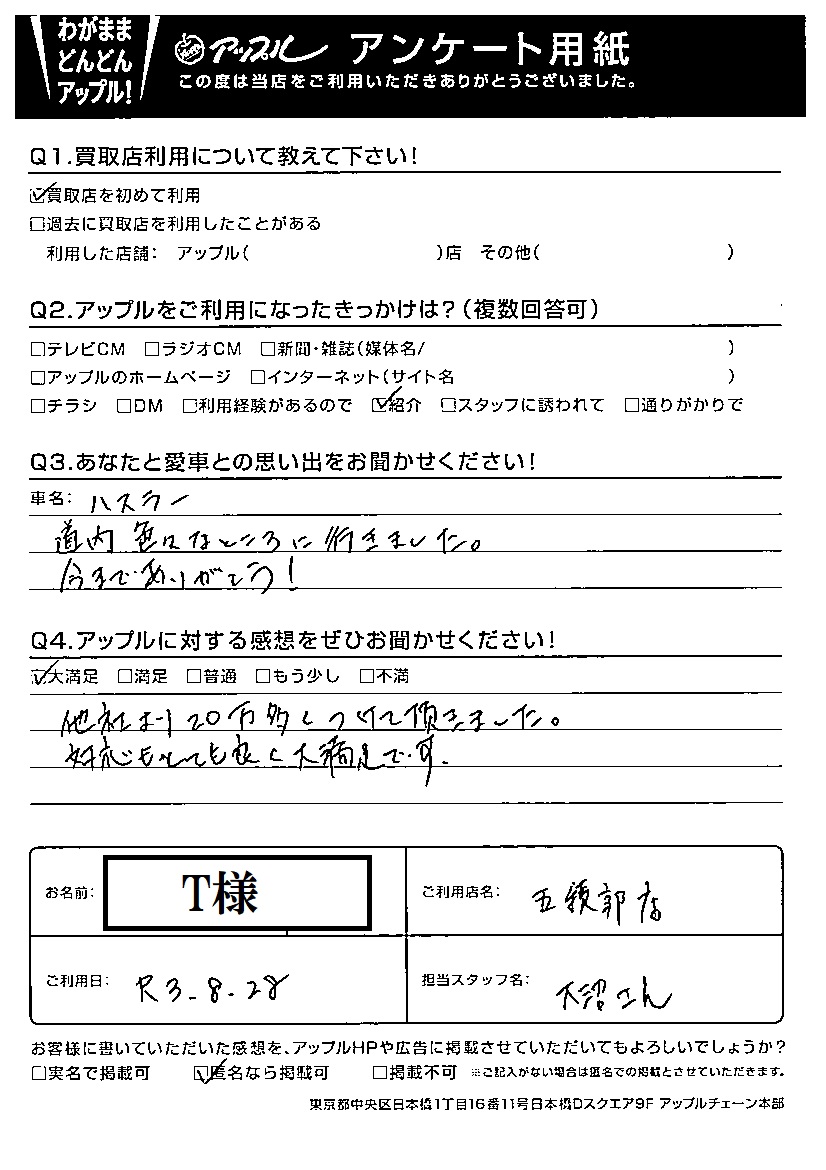 わがまま
どんどん
アップル!
アップル アンケート用紙
この度は当店をご利用いただきありがとうございました。
Q1.買取店利用について教えて下さい!
☑買取店を初めて利用
□過去に買取店を利用したことがある
利用した店舗: アップル( )店 その他( )
Q2.アップルをご利用になったきっかけは?(複数回答可)
□テレビCM □ラジオCM □新聞・雑誌(媒体名/ )
□アップルのホームページ □インターネット(サイト名 )
□チラシ □DM □利用経験があるので ☑紹介 □スタッフに誘われて □通りがかりで
Q3.あなたと愛車との思い出をお聞かせください!
車名: ハスラー
道内色々なところに行きました。
今までありがとう!
Q4.アップルに対する感想をぜひお聞かせください!
☑大満足 □満足 □普通 □もう少し □不満
他社より20万多くつけて頂きました。
対応もとても良く大満足です。
お名前: T様
ご利用店名: 五稜郭店
ご利用日: R3.8.28
担当スタッフ名: 大沼さん
お客様に書いていただいた感想を、アップルHPや広告に掲載させていただいてもよろしいでしょうか?
□実名で掲載可 ☑匿名なら掲載可 □掲載不可 ※ご記入がない場合は匿名での掲載とさせていただきます。
東京都中央区日本橋1丁目16番11号日本橋Dスクエア9F アップルチェーン本部